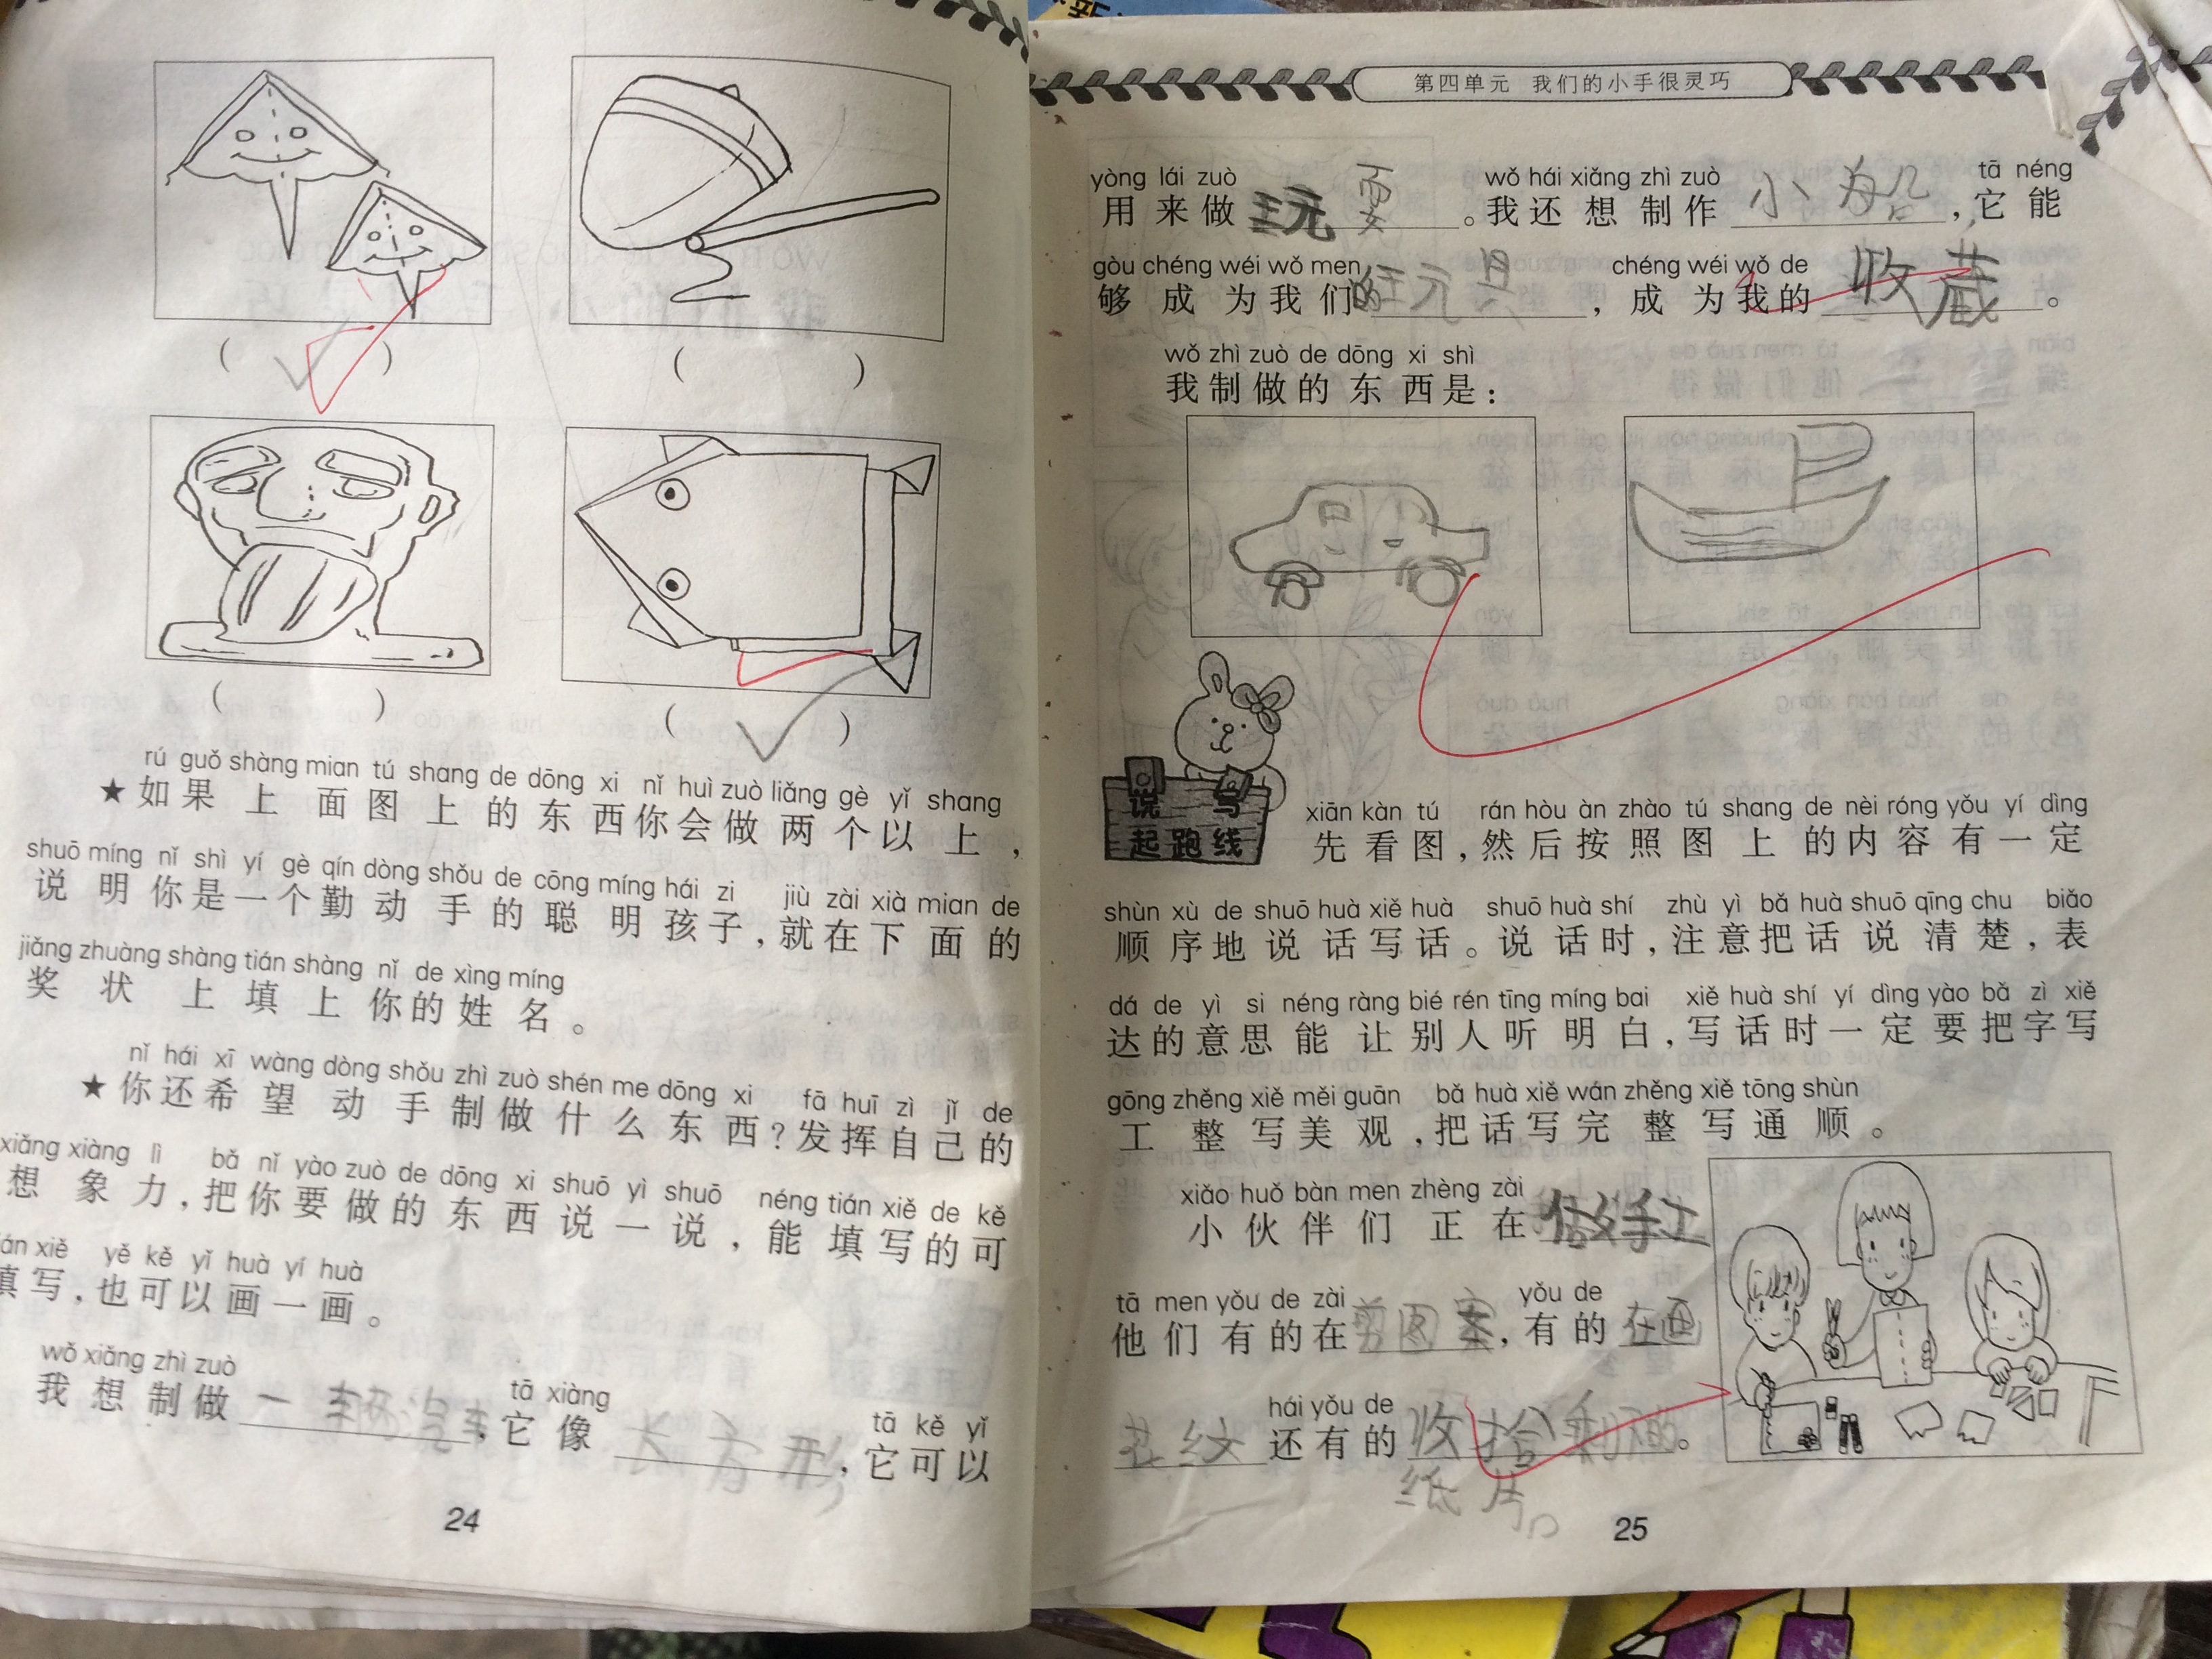 ( ✓ ) ( )
( ) ( ✓ )
rú guǒ shàng mian tú shang de dōng xi nǐ huì zuò liǎng gè yǐ shang
★如果上面图上的东西你会做两个以上，
shuō míng nǐ shì yí gè qín dòng shǒu de cōng míng hái zi jiù zài xià mian de
说明你是一个勤动手的聪明孩子，就在下面的
jiǎng zhuàng shàng tián shàng nǐ de xìng míng
奖状上填上你的姓名。
nǐ hái xī wàng dòng shǒu zhì zuò shén me dōng xi fā huī zì jǐ de
★你还希望动手制做什么东西？发挥自己的
xiǎng xiàng lì bǎ nǐ yào zuò de dōng xi shuō yì shuō néng tián xiě de kě
想象力，把你要做的东西说一说，能填写的可
án xiě yě kě yǐ huà yí huà
填写，也可以画一画。
wǒ xiǎng zhì zuò tā xiàng tā kě yǐ
我想制做一辆汽车，它像长方形，它可以
24
第四单元 我们的小手很灵巧
yòng lái zuò wǒ hái xiǎng zhì zuò tā néng
用来做玩耍。我还想制作小船，它能
gòu chéng wéi wǒ men chéng wéi wǒ de
够成为我们的玩具，成为我的收藏。
wǒ zhì zuò de dōng xi shì
我制做的东西是：
说写
起跑线
xiān kàn tú rán hòu àn zhào tú shang de nèi róng yǒu yí dìng
先看图，然后按照图上的内容有一定
shùn xù de shuō huà xiě huà shuō huà shí zhù yì bǎ huà shuō qīng chu biǎo
顺序地说话写话。说话时，注意把话说清楚，表
dá de yì si néng ràng bié rén tīng míng bai xiě huà shí yí dìng yào bǎ zì xiě
达的意思能让别人听明白，写话时一定要把字写
gōng zhěng xiě měi guān bǎ huà xiě wán zhěng xiě tōng shùn
工整写美观，把话写完整写通顺。
xiǎo huǒ bàn men zhèng zài
小伙伴们正在做手工
tā men yǒu de zài yǒu de
他们有的在剪图案，有的在画
hái yǒu de
花纹还有的收拾剩下的。
纸片。
25